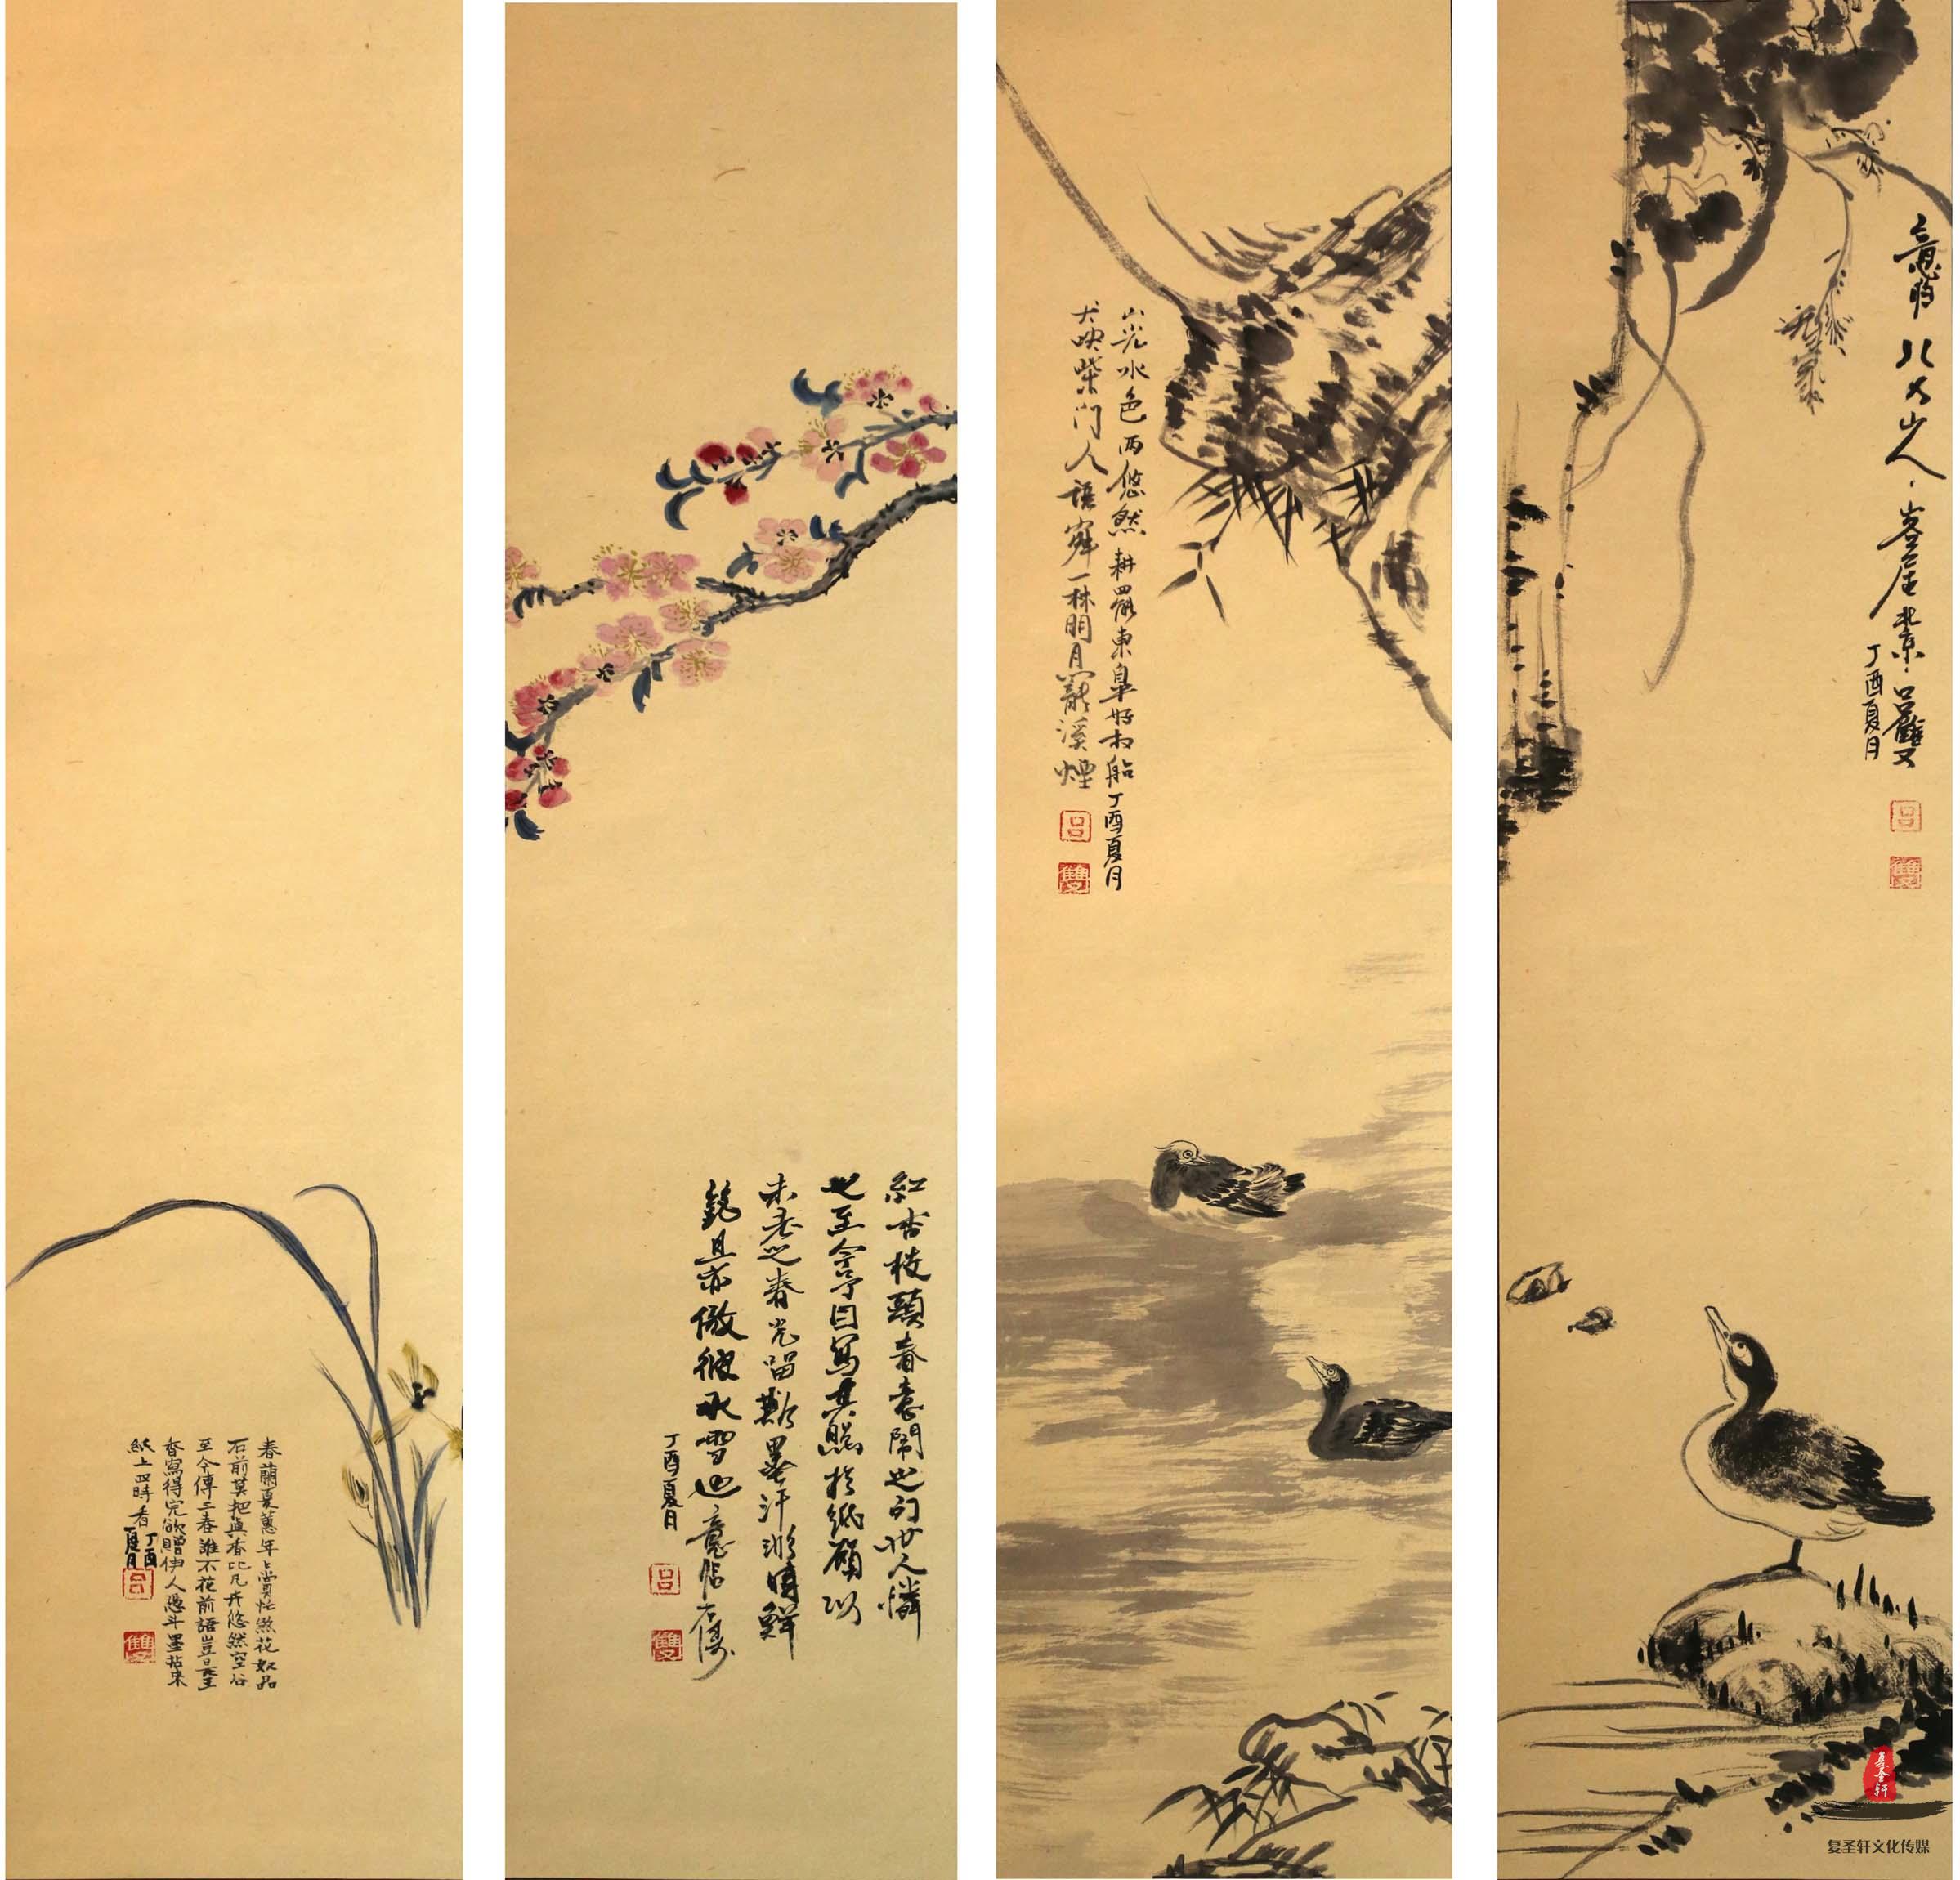 春蘭夏蕙年〻賞忙煞花奴品
石前莫把與香比凡卉悠然空谷
至今傳三春誰不花前語豈是王
香寫得完欲贈伊人憑斗墨拈來
紙上四時香
丁酉
夏月
呂
雙
紅杏枝頭春意鬧也句世人憐
之至今 因寫其貌於紙願以
未老之春光留 墨汁 時鮮
艷且亦傲彼氷雪也意臨石濤
丁酉夏月
呂
雙
山光水色兩悠然耕罷東皐好放船丁酉夏月
犬吠柴門人語寂一林明月 溪煙
呂
雙
意臨八大山人 崖北京呂雙
丁酉夏月
呂
雙
复圣轩
复圣轩文化传媒